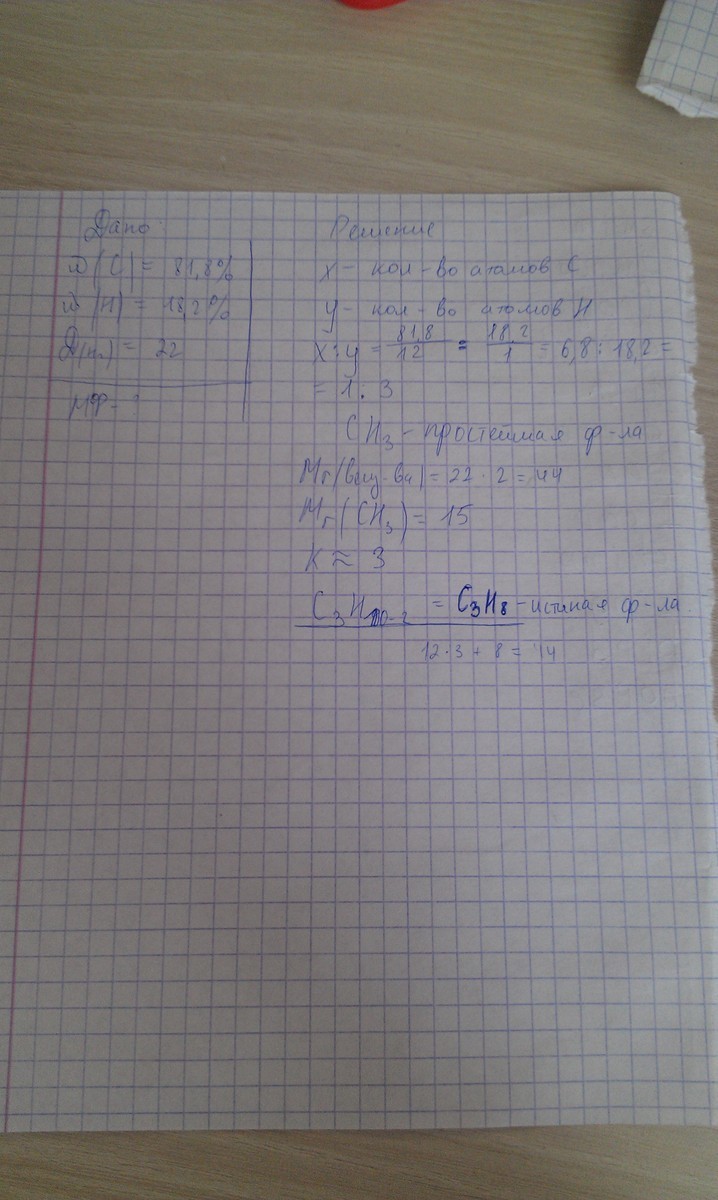 Дано:
W(C) = 81,8%
W(H) = 18,2%
D(H₂) = 22
МФ - ?
Решение
x - кол-во атомов C
y - кол-во атомов H
x:y = 81,8/12 = 18,2/1 = 6,8 : 18,2 =
= 1 : 3
CH₃ - простейшая ф-ла
Mr(вещ-ва) = 22 · 2 = 44
Mr(CH₃) = 15
K ≈ 3
= C₃H₈ - истиная ф-ла
12·3 + 8 = 44